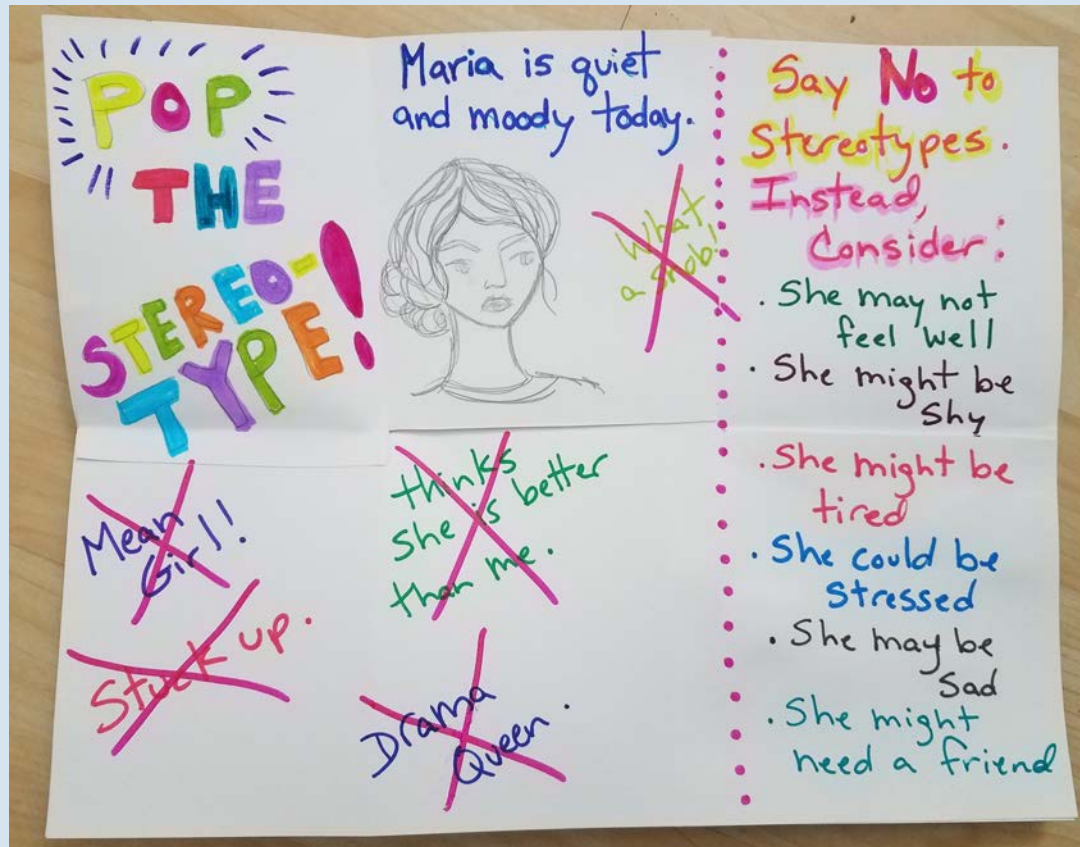 POP
THE
STEREO-
TYPE!
Maria is quiet
and moody today.
What
a snob!
Mean
Girl!
Stuck up.
thinks
she is better
than me.
Drama
Queen.
Say No to
Stereotypes.
Instead,
Consider:
. She may not
feel well
. She might be
shy
. She might be
tired
. She could be
stressed
. She may be
Sad
. She might
need a friend